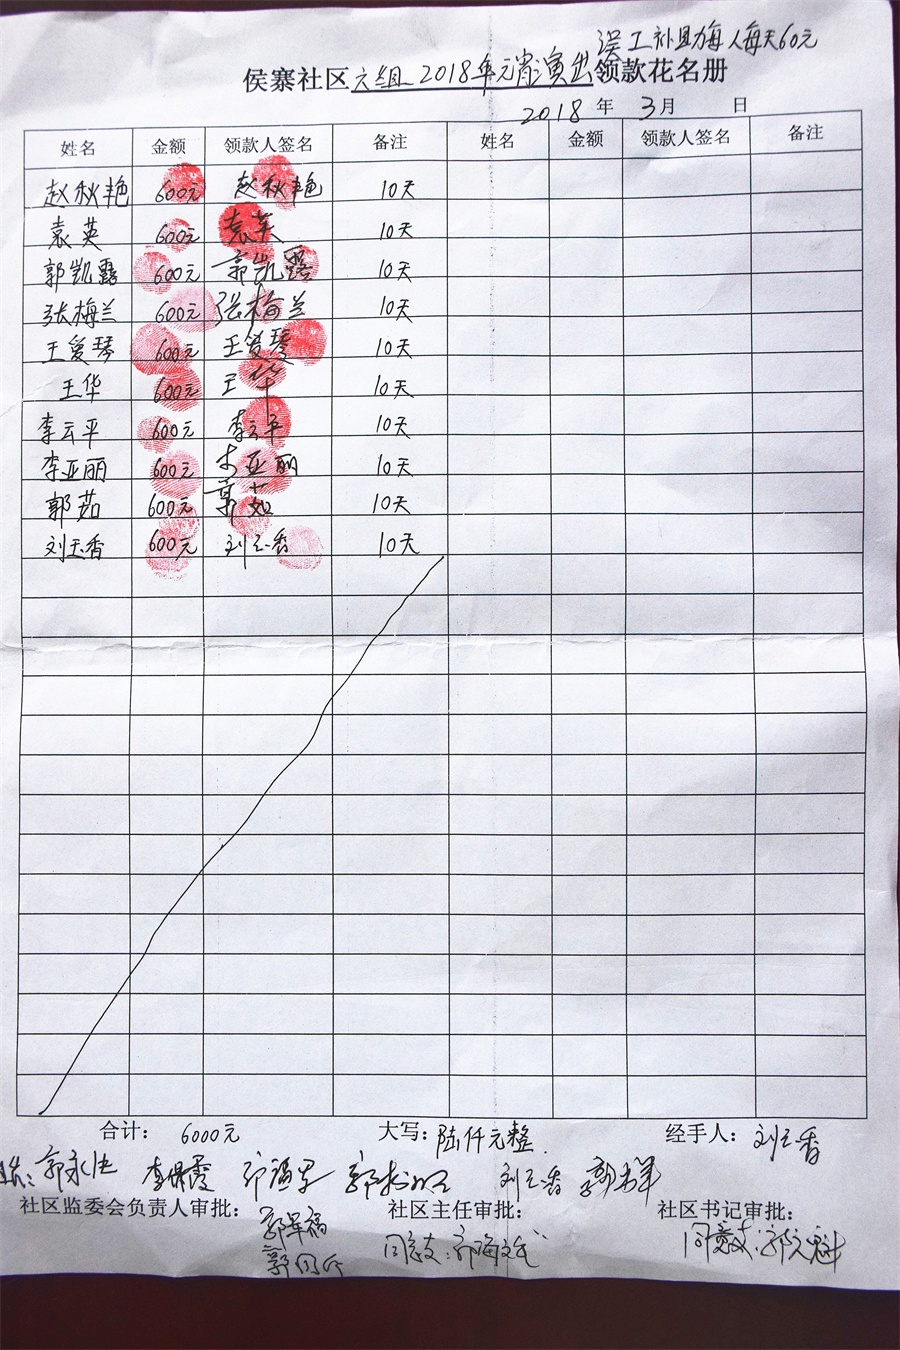 误工补助每人每天60元
侯寨社区六组2018年元宵演出领款花名册
2018年3月 日
姓名 金额 领款人签名 备注 姓名 金额 领款人签名 备注
赵秋艳 600元 赵秋艳 10天
袁英 600元 袁英 10天
郭凯露 600元 郭凯露 10天
张梅兰 600元 张梅兰 10天
王爱琴 600元 王爱琴 10天
王华 600元 王华 10天
李云平 600元 李云平 10天
李亚丽 600元 李亚丽 10天
郭茹 600元 郭茹 10天
刘玉香 600元 刘玉香 10天
合计： 6000元 大写：陆仟元整 经手人：刘玉香
郭永法 李保霞 刘玉香
社区监委会负责人审批： 社区主任审批： 社区书记审批：
郭军福 同意支 同意支